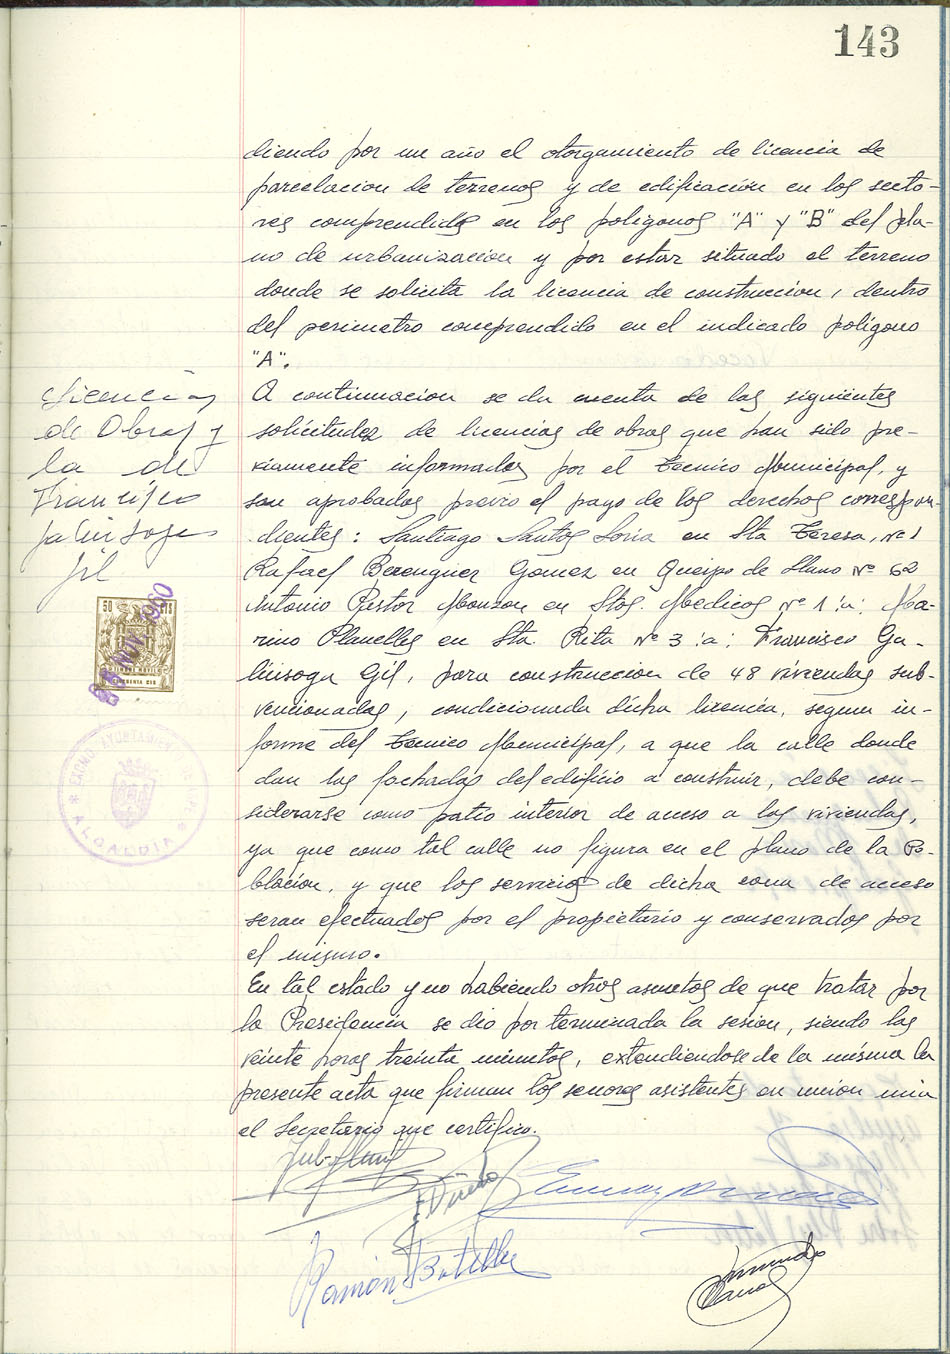 143
diendo por un año el otorgamiento de licencia de
parcelacion de terrenos y de edificación en los secto-
res comprendidos en los polígonos "A" y "B" del pla-
no de urbanización y por estar situado el terreno
donde se solicita la licencia de construccion, dentro
del perimetro comprendido en el indicado polígono
"A".
Licencias
de Obras y
la de
Francisco
Galinsoga
Gil
A continuacion se da cuenta de las siguientes
solicitudes de licencias de obras que han sido pre-
viamente informadas por el Tecnico Municipal, y
son aprobadas previo el pago de los derechos correspon-
dientes: Santiago Santos Soria en Sta Teresa, nº 1
Rafael Berenguer Gomez en Queipo de Llano Nº 62
Antonio Pastor Monzon en Stos. Medicos Nº 1 :a: Ma-
rino Planelles en Sta. Rita Nº 3 :a: Francisco Ga-
linsoga Gil, para construccion de 48 viviendas sub-
vencionadas, condicionada dicha licencia, segun in-
forme del Tecnico Municipal, a que la calle donde
dan las fachadas del edificio a construir, debe con-
siderarse como patio interior de acceso a las viviendas,
ya que como tal calle no figura en el plano de la Po-
blación, y que los servicios de dicha zona de acceso
seran efectuados por el propietario y conservados por
el mismo.
En tal estado y no habiendo otros asuntos de que tratar por
la Presidencia se dio por terminada la sesion, siendo las
veinte horas treinta minutos, extendiendose de la misma la
presente acta que firman los señores asistentes en union mia
el Secretario que certifico.
50 CTS
NOV 1960
EXCMO. AYUNTAMIENTO
ALCALDIA
Ramón Botella